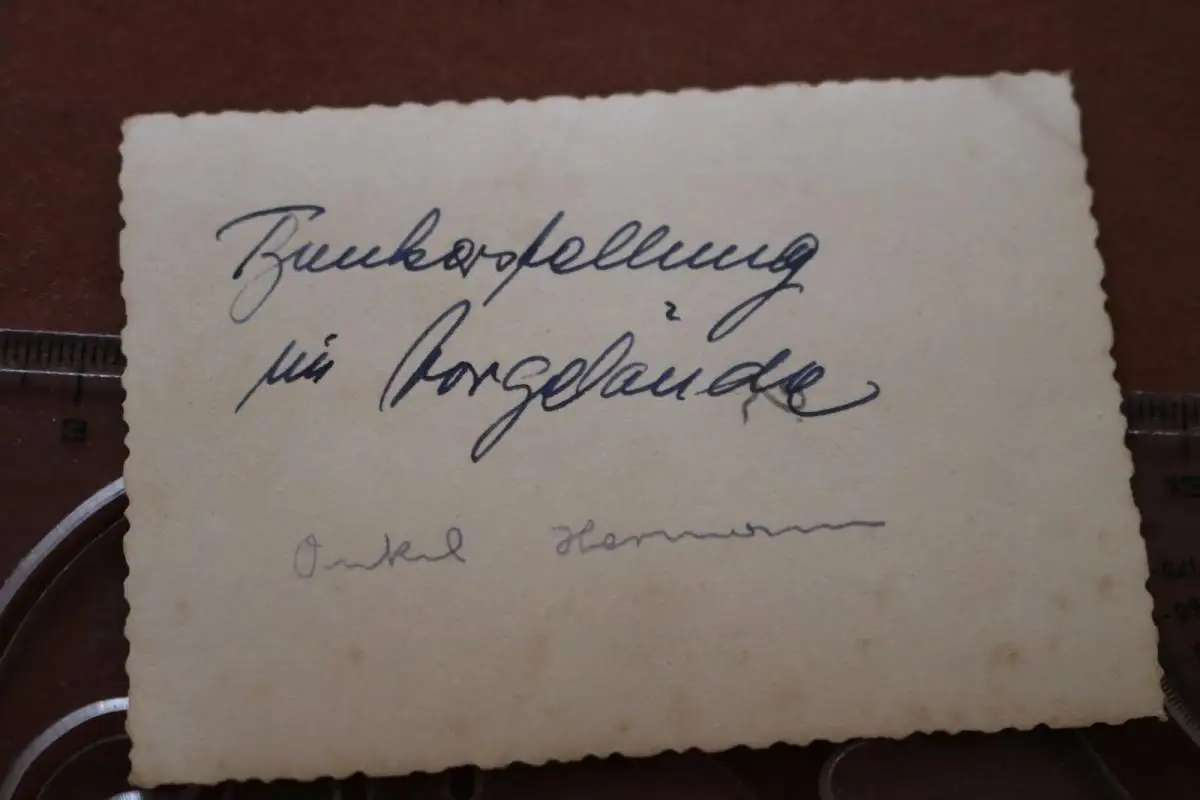 Bunkerstellung
im Vorgelände
Onkel Hermann